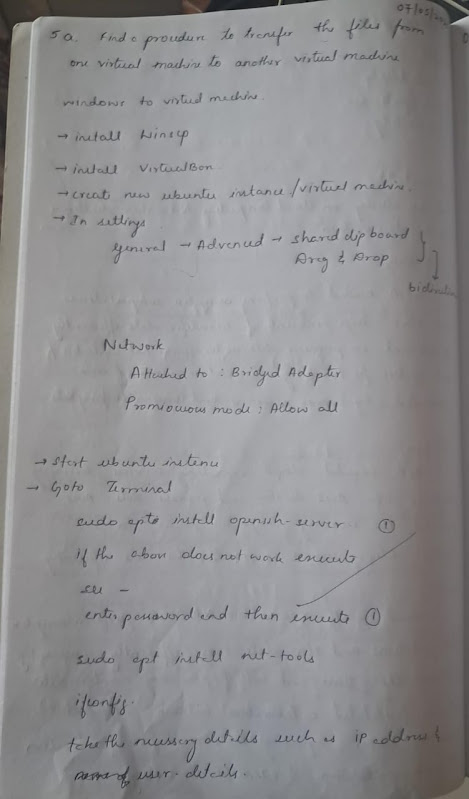 07/05/
5 a. Find a procedure to transfer the files from
one virtual machine to another virtual machine
windows to virtual machine.
→ install Winscp
→ install VirtualBox
→ creat new ubuntu instance/virtual machine.
→ In settings
General → Advanced → shared clip board
Drag & Drop
Network
Attached to : Bridged Adapter
Promiscuous mode : Allow all
→ start ubuntu instance
→ Goto Terminal
sudo apt install openssh-server ①
if the above does not work execute
su -
enter password and then execute ①
sudo apt install net-tools
ifconfig.
take the necessary details such as ip address &
user details.